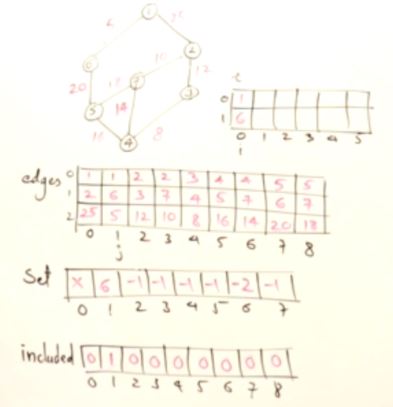 1
5
25
6
2
20
10
12
7
5
14
3
16
8
4
t
0 1
1 6
0 1 2 3 4 5
i
edges
0 1 1 2 2 3 4 4 5 5
1 2 6 3 7 4 5 7 6 7
2 25 5 12 10 8 16 14 20 18
0 1 2 3 4 5 6 7 8
j
Set X 6 -1 -1 -1 -1 -2 -1
0 1 2 3 4 5 6 7
included 0 1 0 0 0 0 0 0 0
0 1 2 3 4 5 6 7 8